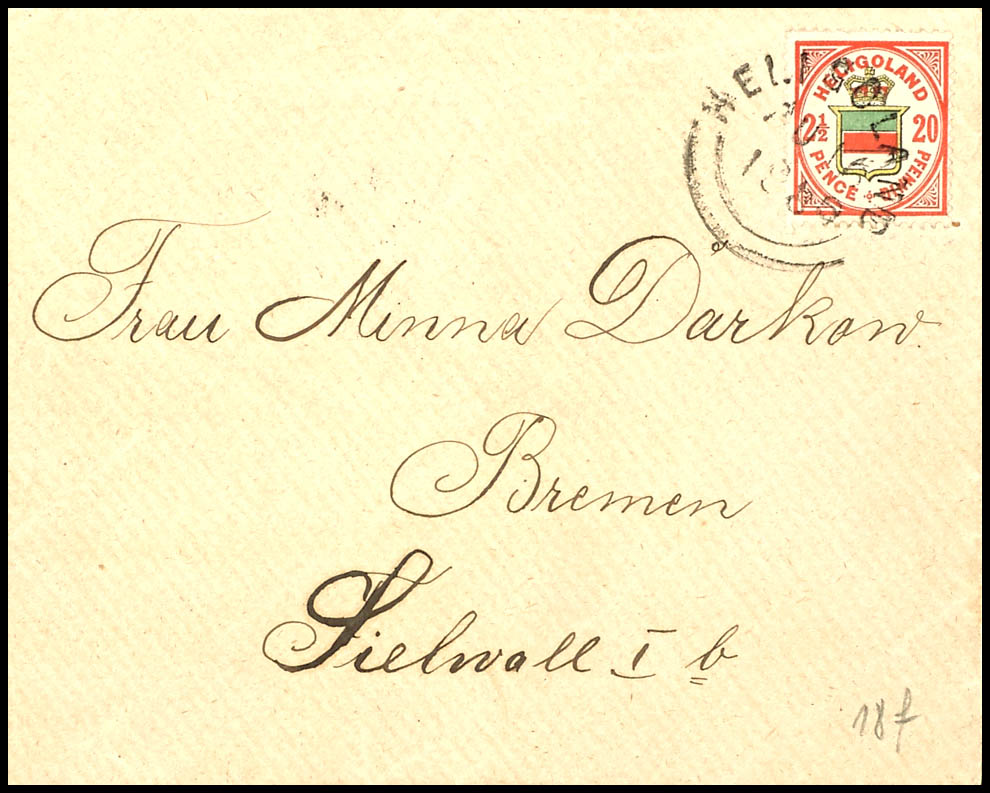 HELIGOLAND
2½ 20
PENCE PFENNIG
HELIGOLAND
Frau Minna Darkow.
Bremen
Sielwall I b
18f